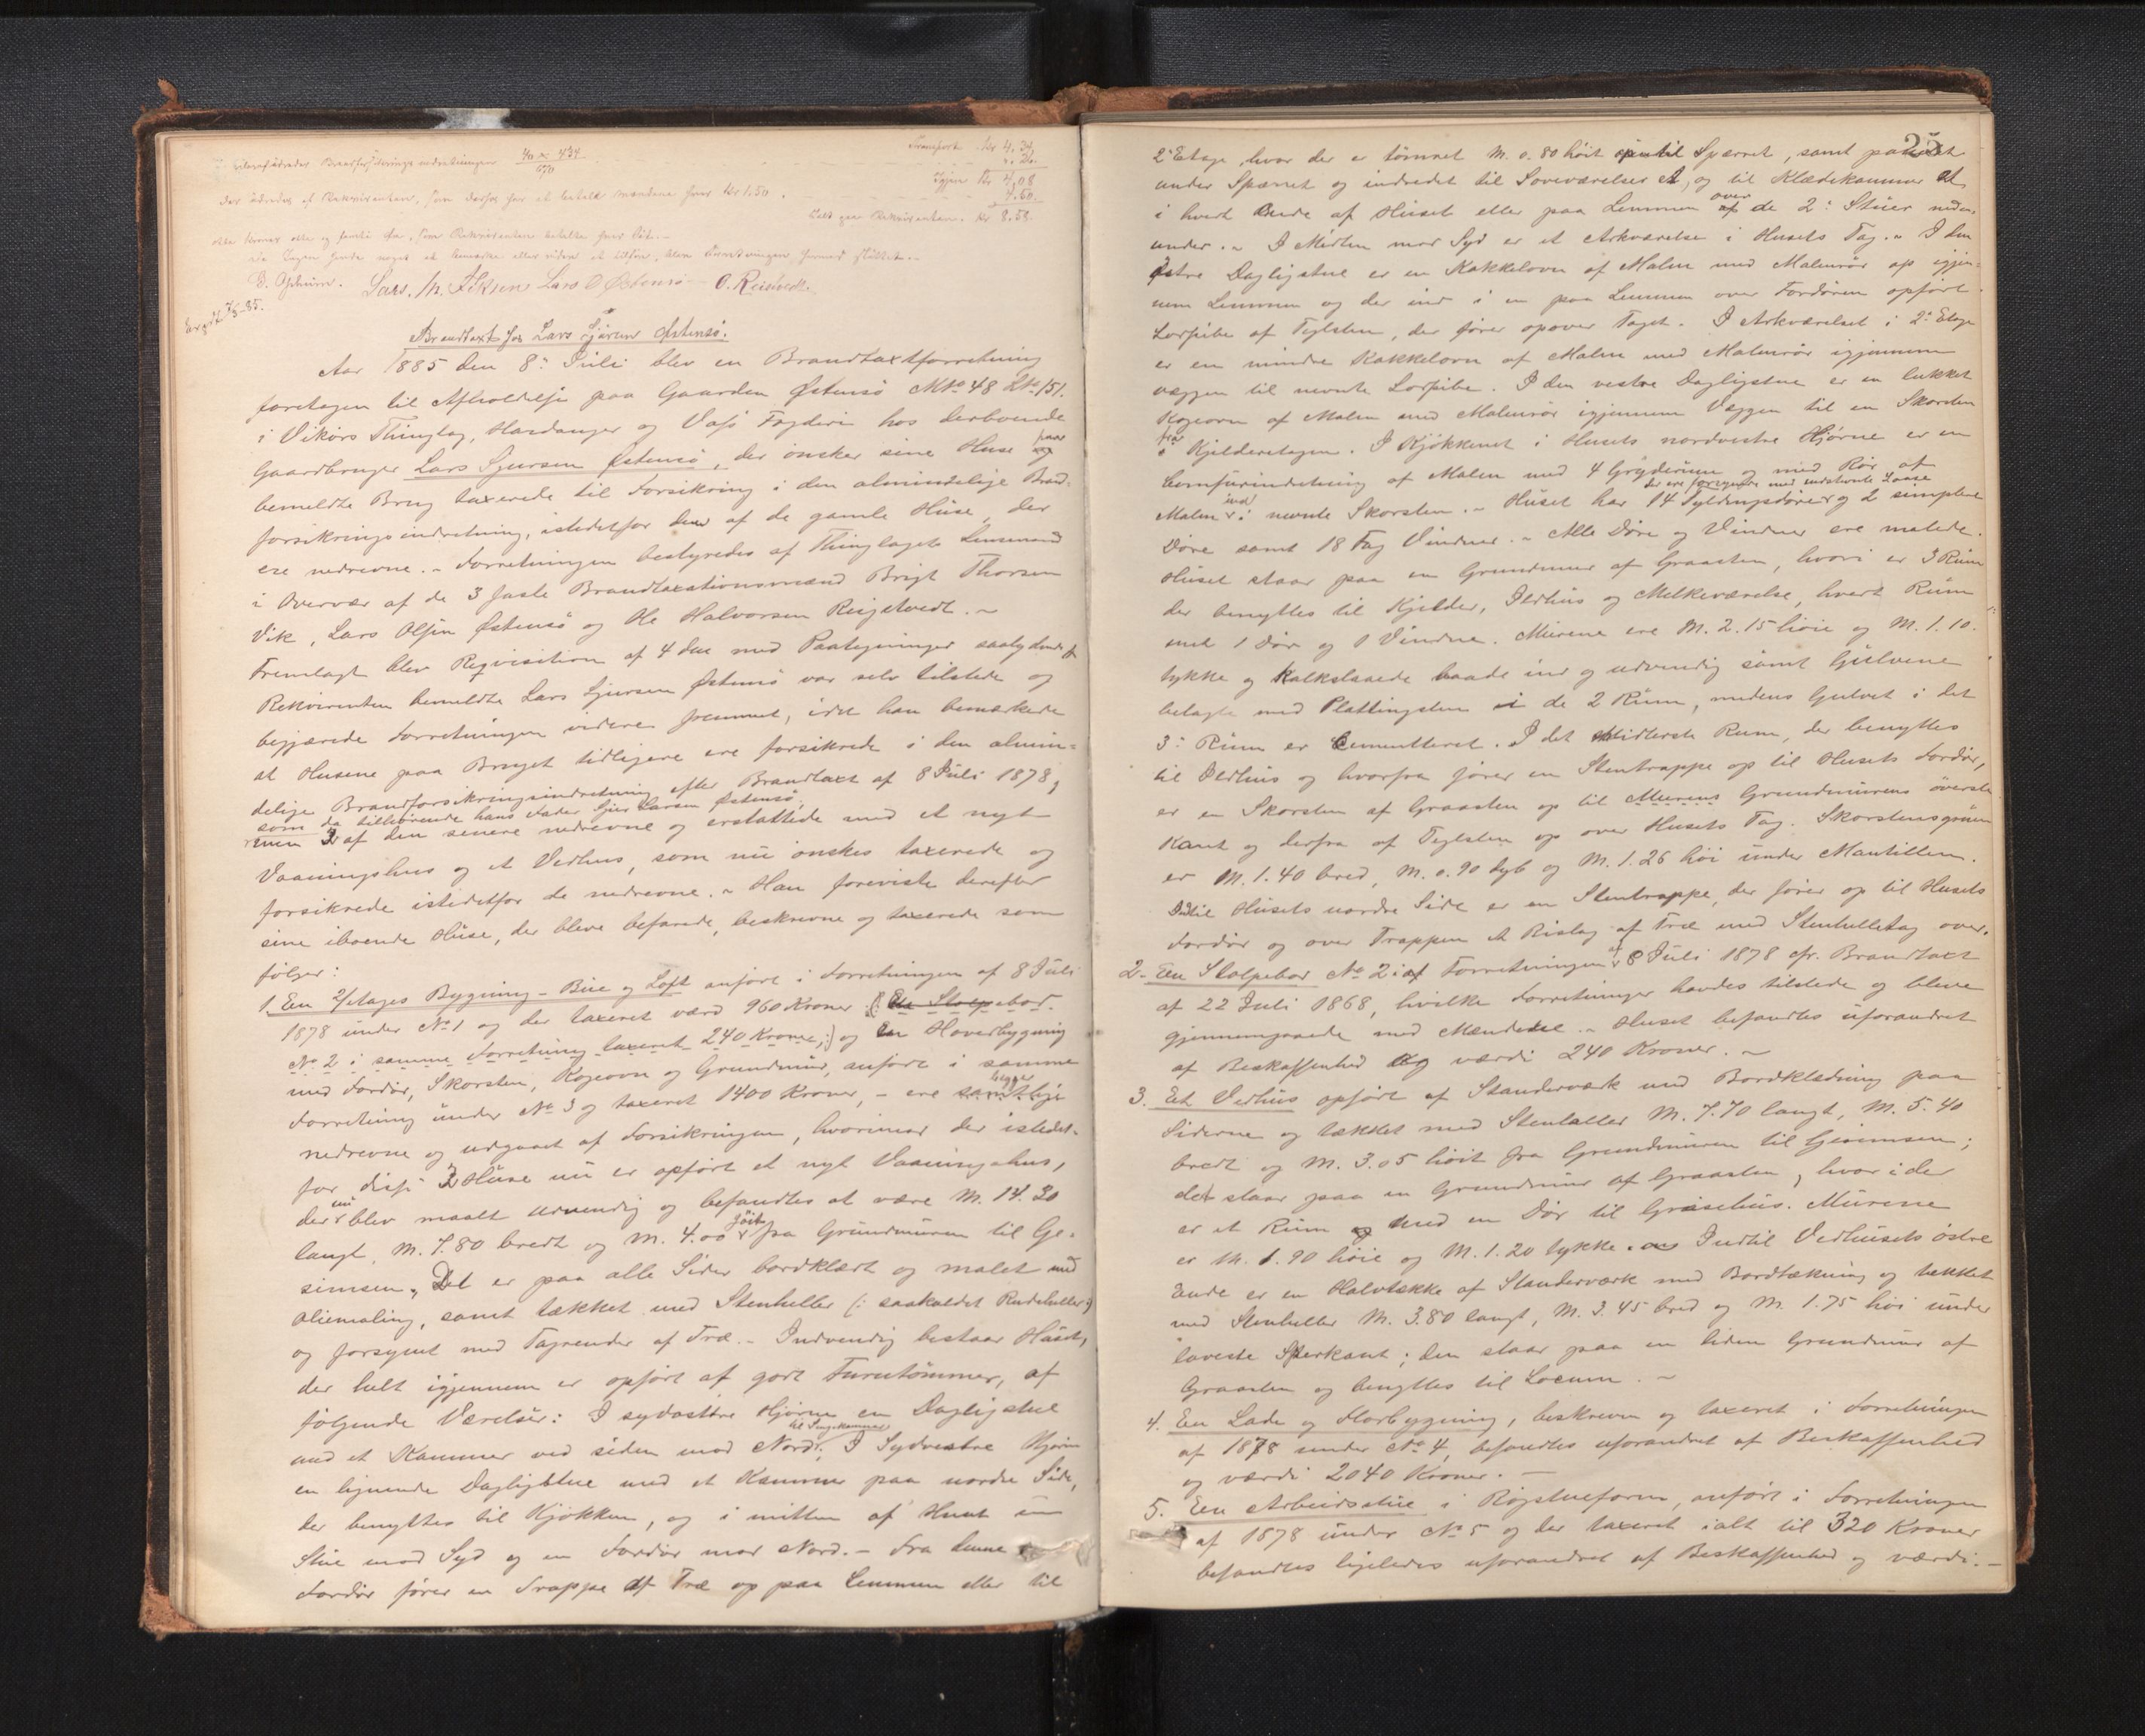 Transport Kr 4.24.
Brandforsikringsindretningen 4/11 × 434
670
Igjen Kr 4,08
der udredes af Rekvirenten, som derfor har at betale mændene hver Kr 1.50.
4.50.
Kr 8.58.
otte Kroner otte og femti Øre, som Rekvirenten betalte hver sit.
Da Ingen havde noget at bemærke eller videre at tilføre, blev Forretningen hermed sluttet.
Lars. M. Lars O Østensø O. Reisetvedt.
Brandtaxt hos Lars Sjursen Østensø.
Aar 1885 den 8de Juli blev en Brandtaxtforretning
foretagen til Afholdelse paa Gaarden Østensø Mto 48 Lto 151.
i Vikørs Thinglag, Hardanger og Voss Fogderi hos derboende
Gaardbruger Lars Sjursen Østensø, der ønsker sine Huse paa
bemeldte Brug taxerede til Forsikring i den almindelige Brand-
forsikringsindretning, istedetfor dem af de gamle Huse, der
ere nedrevne. - Forretningen bestyredes af Thinglagets Lensmand
i Overvær af de 3 faste Brandtaxationsmænd Brigt Thorsen
Vik, Lars Olsen Østensø og Ole Halvorsen Reisetvedt. ~
Fremlagt blev Reqvisition af 4 dns med Paategninger saalydende
Rekvirenten bemeldte Lars Sjursen Østensø var selv tilstede og
begjærede Forretningen videre fremmet, idet han bemærkede
at Husene paa Bruget tidligere ere forsikrede i den almin-
delige Brandforsikringsindretning efter Brandtaxt af 8 Juli 1878,
som da tilhørende hans Fader Sjur Larsen Østensø,
men 2 af dem senere nedrevne og erstattede med et nyt
Vaaningshus og et Vedhus, som nu ønskes taxerede og
forsikrede istedetfor de nedrevne. - Han foreviste derefter
sine iboende Huse, der bleve befarede, beskrevne og taxerede som
følger:
1. Een 2 Etages Bygning - Bue og Loft anført i Forretningen af 8 Juli
1878 under No 1 og der taxeret værd 960 Kroner (: En Stolpebod
No 2 i samme Forretning taxeret 240 Kroner,:) og en Hoverbygning
med Fordør, Skorsten, Kogeovn og Grundmur, anført i samme
begge
Forretning under No 3 og taxeret 1400 Kroner, - ere samtlige
nedrevne og udgaaet af Forsikringen, hvorimod der istedet-
for disse 2 Huse nu er opført et nyt Vaaningshus,
nu
der blev maalt udvendig og befandtes at være M. 14.30
høit
langt, M. 7.80 bredt og M. 4.00 fra Grundmuren til Ge-
simsen. Det er paa alle Sider bordklædt og malet med
oliemaling, samt tækket med Stenheller (: saakaldet Rudeheller :)
og forsynet med Tagrender af Træ. - Indvendig bestaar Huset,
der helt igjennem er opført af godt Furutømmer, af
følgende Værelser: I sydøstre Hjørne en Dagligstue
til Sengekammer
med et Kammer ved siden mod Nord; I Sydvestre Hjørne
en lignende Dagligstue med et Kammer paa nordre Side,
der benyttes til Kjøkken, og i mitten af Huset en
Stue mod Syd og en Fordør mod Nord. - Fra denne
Fordør fører en Trappe af Træ op paa Lemmen eller til
25
2den Etage, hvor der er tømret M. 0.80 høit op til Sperret, samt panelet
under Sperret og indredet til Soveværelser og til Klædekammer et
over
i hvert Ende af Huset eller paa Lemmen de 2de Stuer neden-
under. - I Midten mod Syd er et Arkværelse i Husets Tag. - I den
østre Dagligstue er en Kakkelovn af Malm med Malmrør op igjen-
nem Lemmen og der ind i en paa Lemmen over Fordøren opført
Lorpibe af Teglsten, der fører opover Taget. I Arkværelset i 2den Etage
er en mindre Kakkelovn af Malm med Malmrør igjennem
væggen til nævnte Lorpibe. I den vestre Dagligstue er en lukket
Kogeovn af Malm med Malmrør igjennem Væggen til en Skorsten
fra
Kjelderetagen. I Kjøkkenet i Husets nordvestre Hjørne er en
Comfurindretning af Malm med 4 Gryderum og med Rør af
der ere forsynede med indstemte Laase
ind
Malm i nevnte Skorsten. - Huset har 14 Fyldingsdører og 2 simplere
Døre samt 18 Fag Vinduer. - Alle Døre og Vinduer ere malede.
Huset staar paa en Grundmur af Graasten, hvori er 3 Rum
der benyttes til Kjelder, Ildhus og Melkeværelse, hvert Rum
med 1 Dør og 1 Vindue. Murene ere M. 2.15 høie og M. 1.10
tykke og kalkslaaede baade ind og udvendig samt Gulvene
belagte med Plattingsten i de 2 Rum, medens Gulvet i det
3de Rum er Cementteret. I det midterste Rum, der benyttes
til Ildhus og hvorfra fører en Stentrappe op til Husets Fordør,
er en Skorsten af Graasten op til Murens Grundmurens øverste
Kant og derfra af Teglsten op over Husets Tag. Skorstensgruen
er M. 1.40 bred, M. 0.90 dyb og M. 1.26 høi under Mantillen.
Indtil Husets nordre Side er en Stentrappe, der fører op til Husets
Fordør og over Trappen et Bislag af Træ med Stenhelletag over.
af
2. Een Stolpebod No 2 i Forretningen 8 Juli 1878 cfr. Brandtaxt
af 22 Juli 1868, hvilke Forretninger havdes tilstede og bleve
gjennemgaaede med Mændene. - Huset befandtes uforandret
af Beskaffenhed og værdi 240 Kroner. ~
3. Et Vedhus opført af Standerværk med Bordklædning paa
Siderne og tækket med Stenheller M. 7.70 langt, M. 5.40
bredt og M. 3.05 høit fra Grundmuren til Gesimsen;
det staar paa en Grundmur af Graasten, hvori der
er et Rum med en Dør til Grisehus. Murene
er M. 1.90 høie og M. 1.20 tykke. Indtil Vedhusets østre
Ende er en Halvtække af Standerværk med Bordtækning og tækket
med Stenheller M. 3.80 langt, M. 3.45 bred og M. 1.75 høi under
laveste Sperkant; den staar paa en liden Grundmur af
Graasten og benyttes til Locum. ~
4. Een Lade og Florbygning, beskreven og taxeret i Forretningen
af 1878 under No 4, befandtes uforandret af Beskaffenhed
og værdi 2040 Kroner. -
5. Een Arbeidsstue i Røgstueform, anført i Forretningen
af 1878 under No 5 og der taxeret ialt til 320 Kroner
befandtes ligeledes uforandret af Beskaffenhed og værdi. -